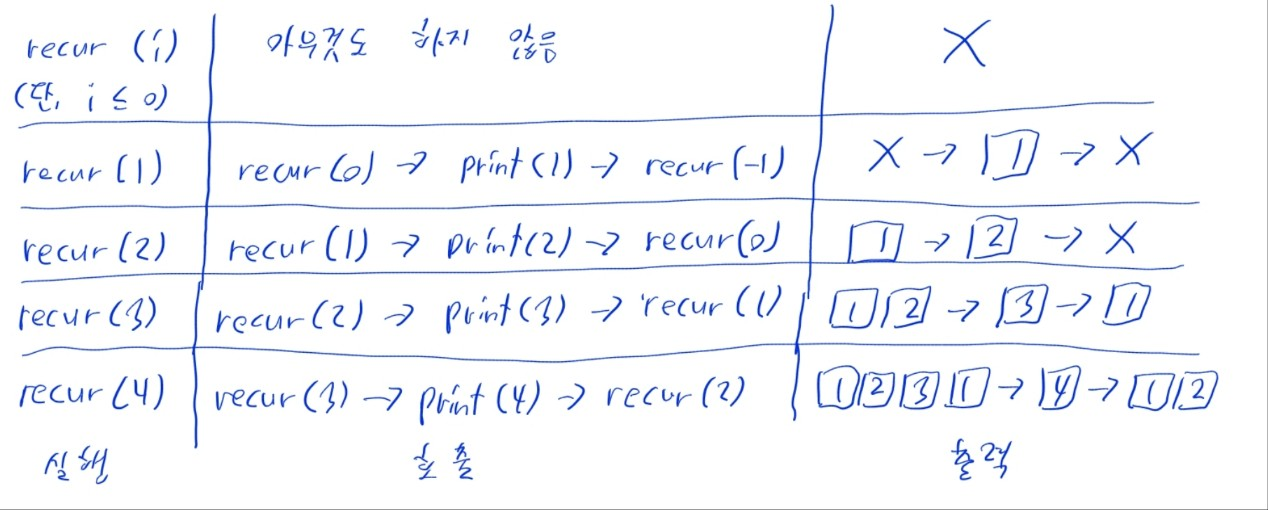 recur (i) 아무것도 하지 않음 X
(단, i ≤ 0)
recur (1) recur(0) → print(1) → recur(-1) X → 1 → X
recur(2) recur(1) → print(2) → recur(0) 1 → 2 → X
recur(3) recur(2) → print(3) → recur(1) 1 2 → 3 → 1
recur(4) recur(3) → print(4) → recur(2) 1 2 3 1 → 4 → 1 2
실행 호출 출력